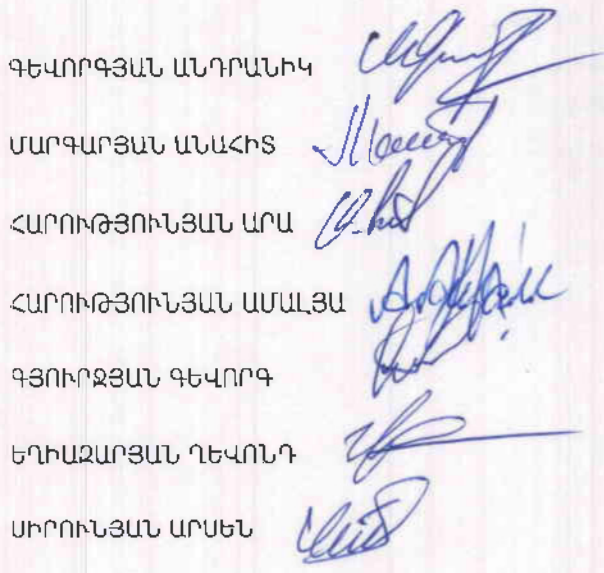 ԳԵՎՈՐԳՅԱՆ ԱՆԴՐԱՆԻԿ
ՄԱՐԳԱՐՅԱՆ ԱՆԱՀԻՏ
ՀԱՐՈՒԹՅՈՒՆՅԱՆ ԱՐԱ
ՀԱՐՈՒԹՅՈՒՆՅԱՆ ԱՄԱԼՅԱ
ԳՅՈՒՐՋՅԱՆ ԳԵՎՈՐԳ
ԵՂԻԱԶԱՐՅԱՆ ՂԵՎՈՆԴ
ՍԻՐՈՒՆՅԱՆ ԱՐՍԵՆ